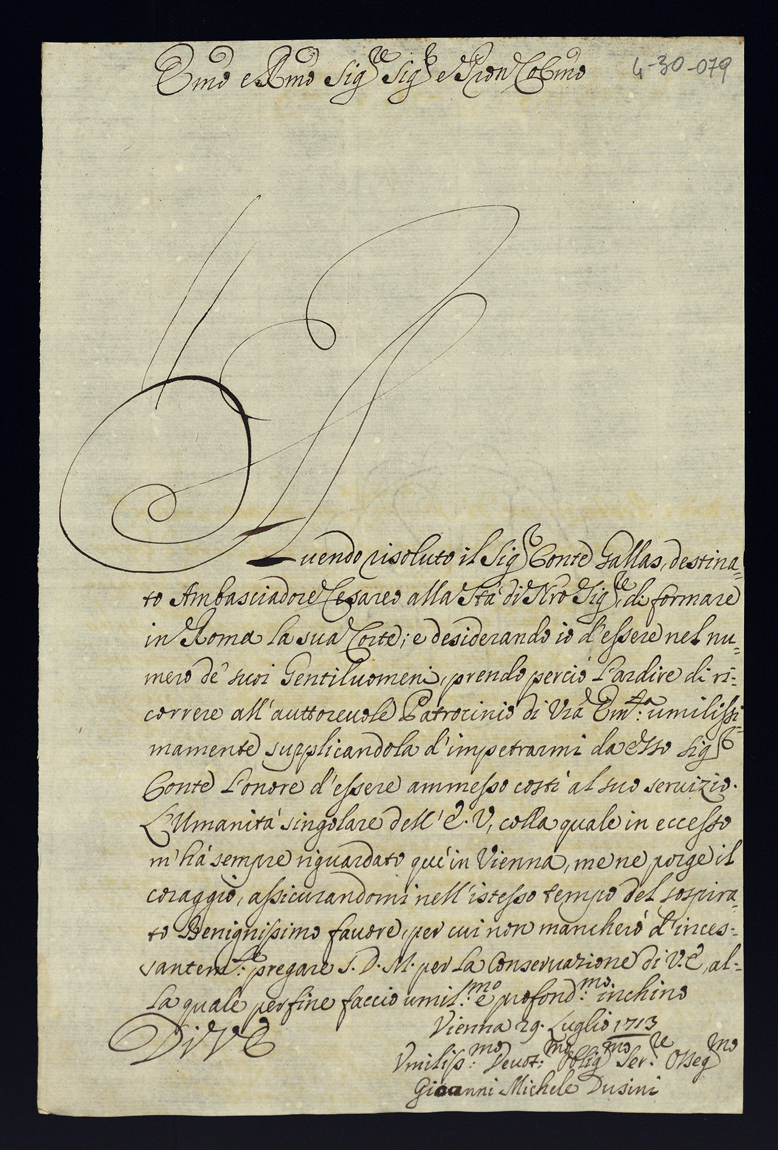 Emo e Rmo Sig.re Sig.r e Pron Colmo
4-30-079
Auendo risoluto il Sig.r Conte Gallas, destina-
to Ambasciadore Cesareo alla Stà di Nro Sig.re, di formare
in Roma la sua Corte; e desiderando io d'essere nel nu-
mero de' suoi Gentiluomeni, prendo perciò l'ardire di ri-
correre all'auttoreuole Patrocinio di Vra Em.za: umilissi-
mamente supplicandola d'impetrarmi da esso Sig.r
Conte l'onore d'essere ammesso costì al suo servizio.
L'Umanità singolare dell'E. V, colla quale in eccesso
m'hà sempre riguardato quì in Vienna, me ne porge il
coraggio, assicurandomi nell'istesso tempo del sospira-
to Benignissimo fauore, per cui non mancherò d'inces-
santem.te: pregare S. D. M. per la Conseruazione di V. E, al-
la quale perfine faccio umil.mo: e profond.mo: inchino
Di V E
Vienna 29. Luglio 1713
Vmiliss.mo: Deuot.mo: Oblig.mo Ser.re Osseq.mo
Giouanni Michele Dusini